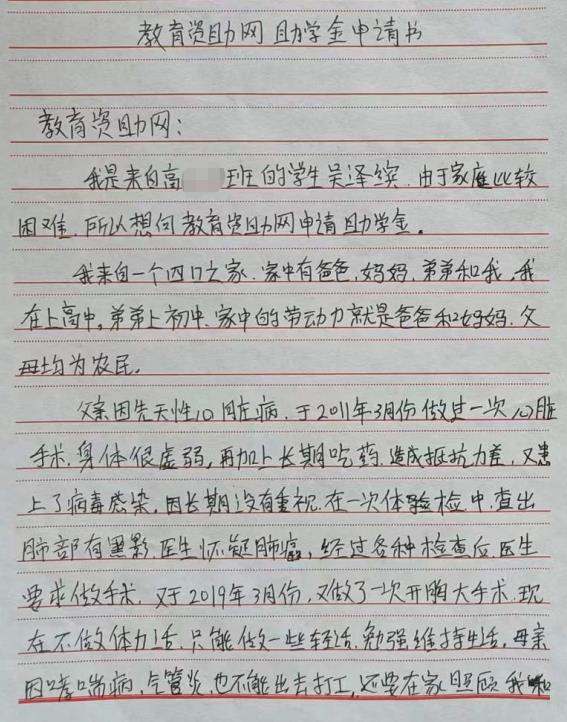 教育资助网助学金申请书
教育资助网:
我是来自高 班的学生吴泽缤.由于家庭比较
困难.所以想向教育资助网申请助学金。
我来自一个四口之家.家中有爸爸,妈妈,弟弟和我,我
在上高中,弟弟上初中.家中的劳动力就是爸爸和妈妈.父
母均为农民.
父亲因先天性心脏病.于2011年3月份做过一次心脏
手术.身体很虚弱,再加上长期吃药.造成抵抗力差,又患
上了病毒感染,因长期没有重视.在一次体验检中.查出
肺部有黑影.医生怀疑肺癌,经过各种检查后.医生
要求做手术.又于2019年3月份,又做了一次开胸大手术.现
在不做体力活.只能做一些轻活.勉强维持生活,母亲
因哮喘病,气管炎,也不能出去打工,还要在家照顾我和